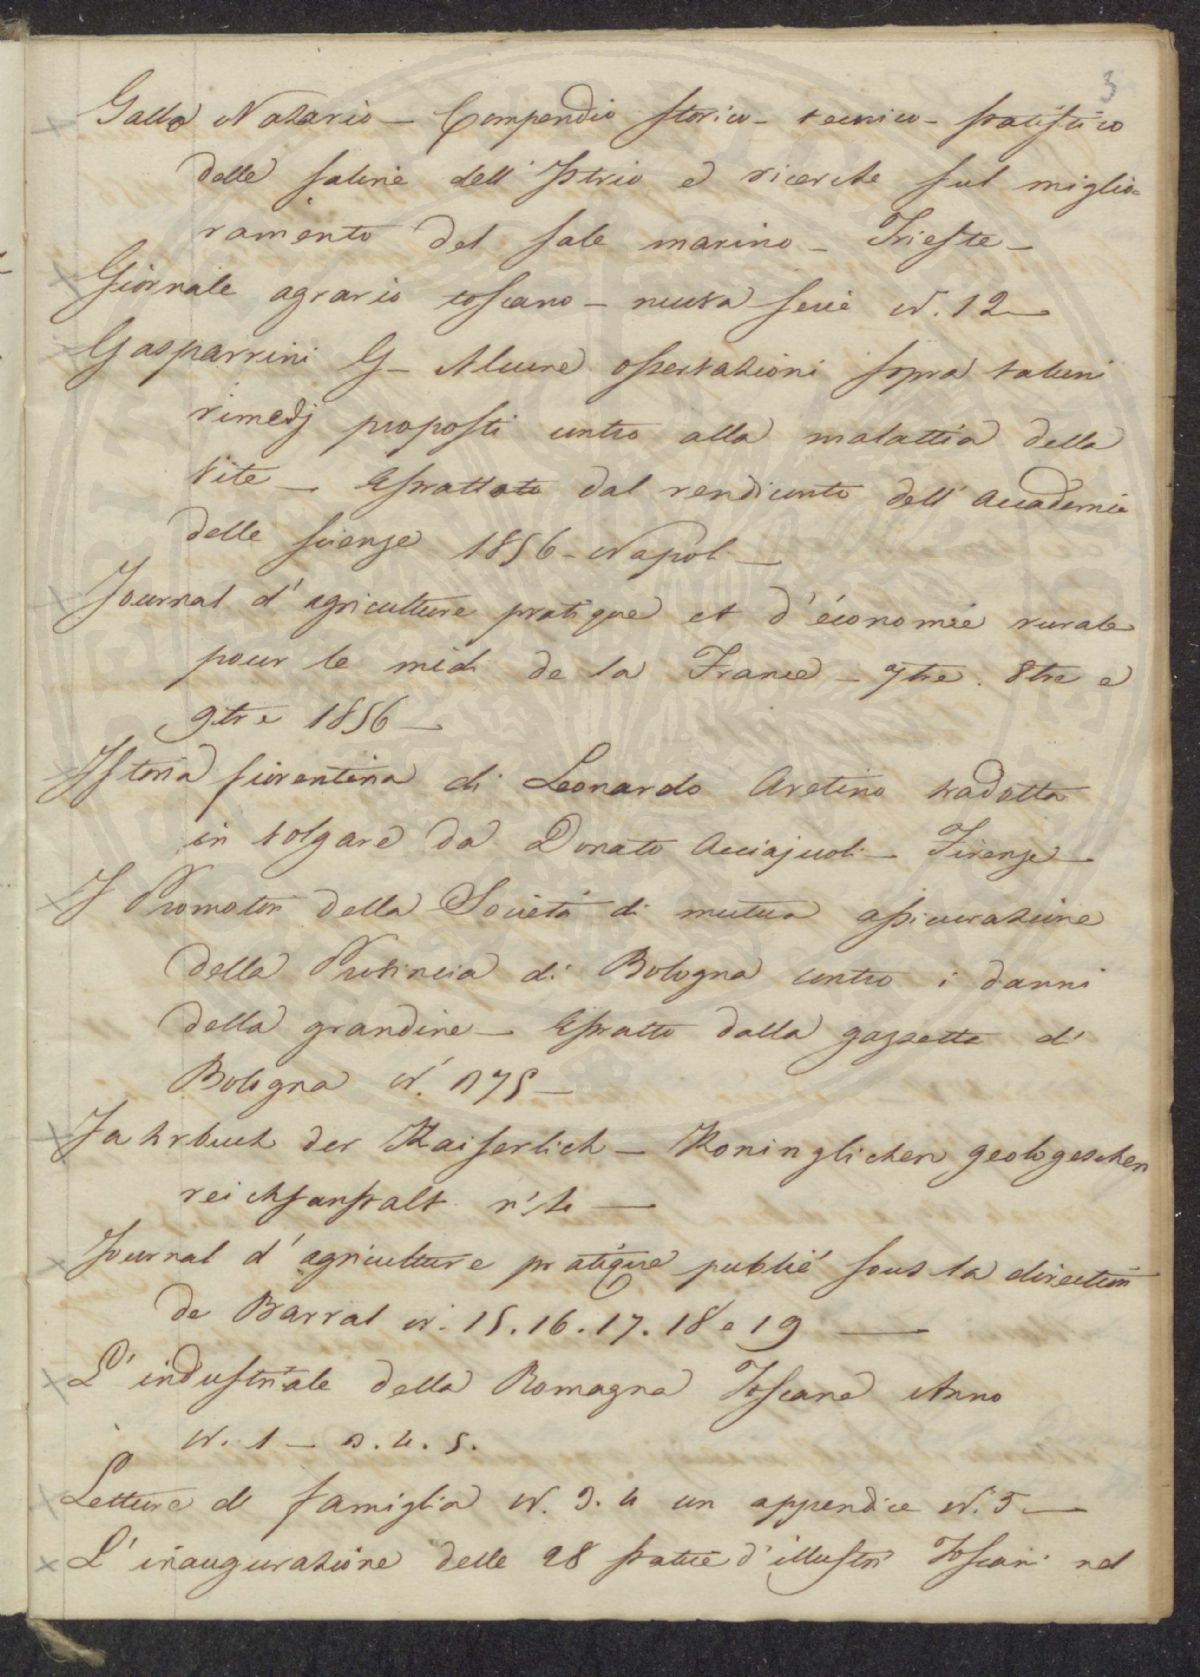 3
Gallo Natario – Compendio storico – tecnico – statistico
delle saline dell'Istrio e ricerche sul miglio-
ramento del sale marino – Trieste –
Giornale agrario toscano – nuova serie N. 12 –
Gasparrini G – Alcune osservazioni sopra taluni
rimedj proposti contro alla malattia della
vite – Estrattato dal rendiconto dell'Accademia
delle scienze 1856 – Napoli –
Journal d'agriculture pratique et d'économie rurale
pour le midi de la France – 7bre. 8bre e
9bre 1856 –
Istoria fiorentina di Leonardo Aretino tradotta
in volgare da Donato Acciajuoli – Firenze –
I Promotori della Società di mutua assicurazione
della Provincia di Bologna contro i danni
della grandine – Estratto dalla gazzetta di
Bologna N. 175 –
Jahrbuch der Kaiserlich – Koninglichen geologeschen
reichsanstalt
Journal d'agriculture pratique publié sous la direction
de Barral N. 15. 16. 17. 18 e 19 –
L'industriale della Romagna Toscana Anno
N. 1 – 3. 4. 5.
Letture di famiglia N. 3. 4 con appendice N. 5 –
L'inaugurazione delle 28 statue d'illustri Toscani nel